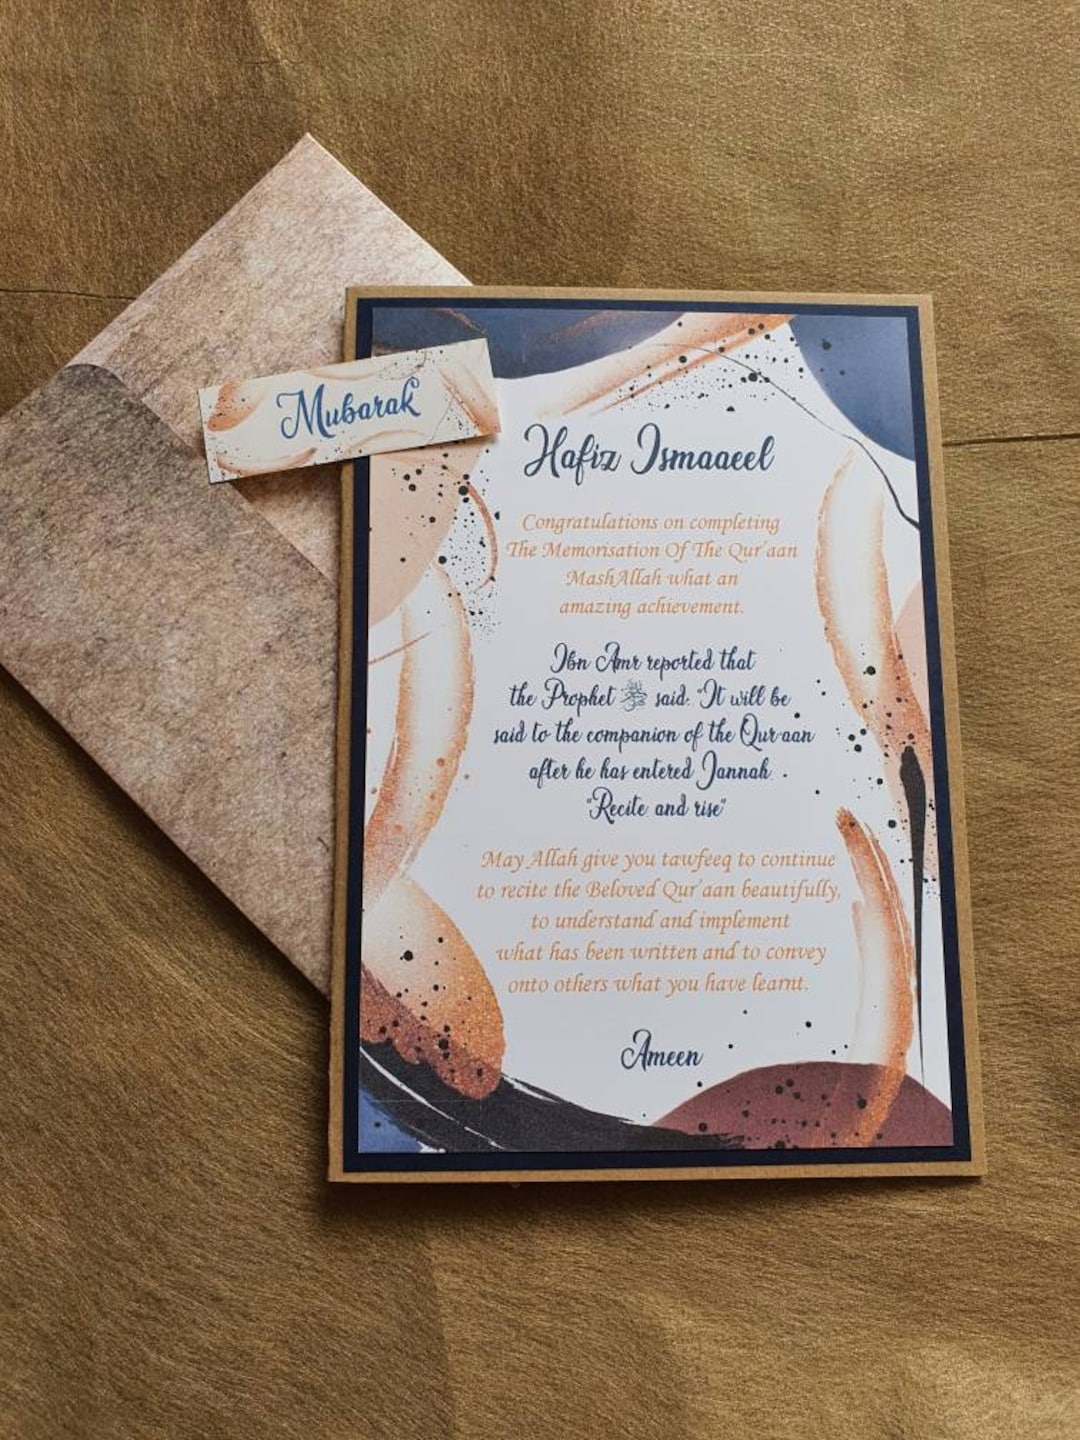 Mubarak
Hafiz Ismaaeel
Congratulations on completing
The Memorisation Of The Qur'aan
MashAllah what an
amazing achievement.
Ibn Amr reported that
the Prophet ﷺ said: "It will be
said to the companion of the Qur'aan
after he has entered Jannah.
"Recite and rise"
May Allah give you tawfeeq to continue
to recite the Beloved Qur'aan beautifully,
to understand and implement
what has been written and to convey
onto others what you have learnt.
Ameen